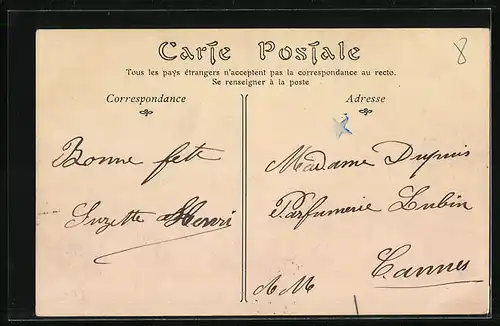 Carte Postale
Tous les pays étrangers n'acceptent pas la correspondance au recto.
Se renseigner à la poste
Correspondance
Bonne fête
Suzette Henri
Adresse
Madame Dupuis
Parfumerie Lubin
Cannes
A M
8